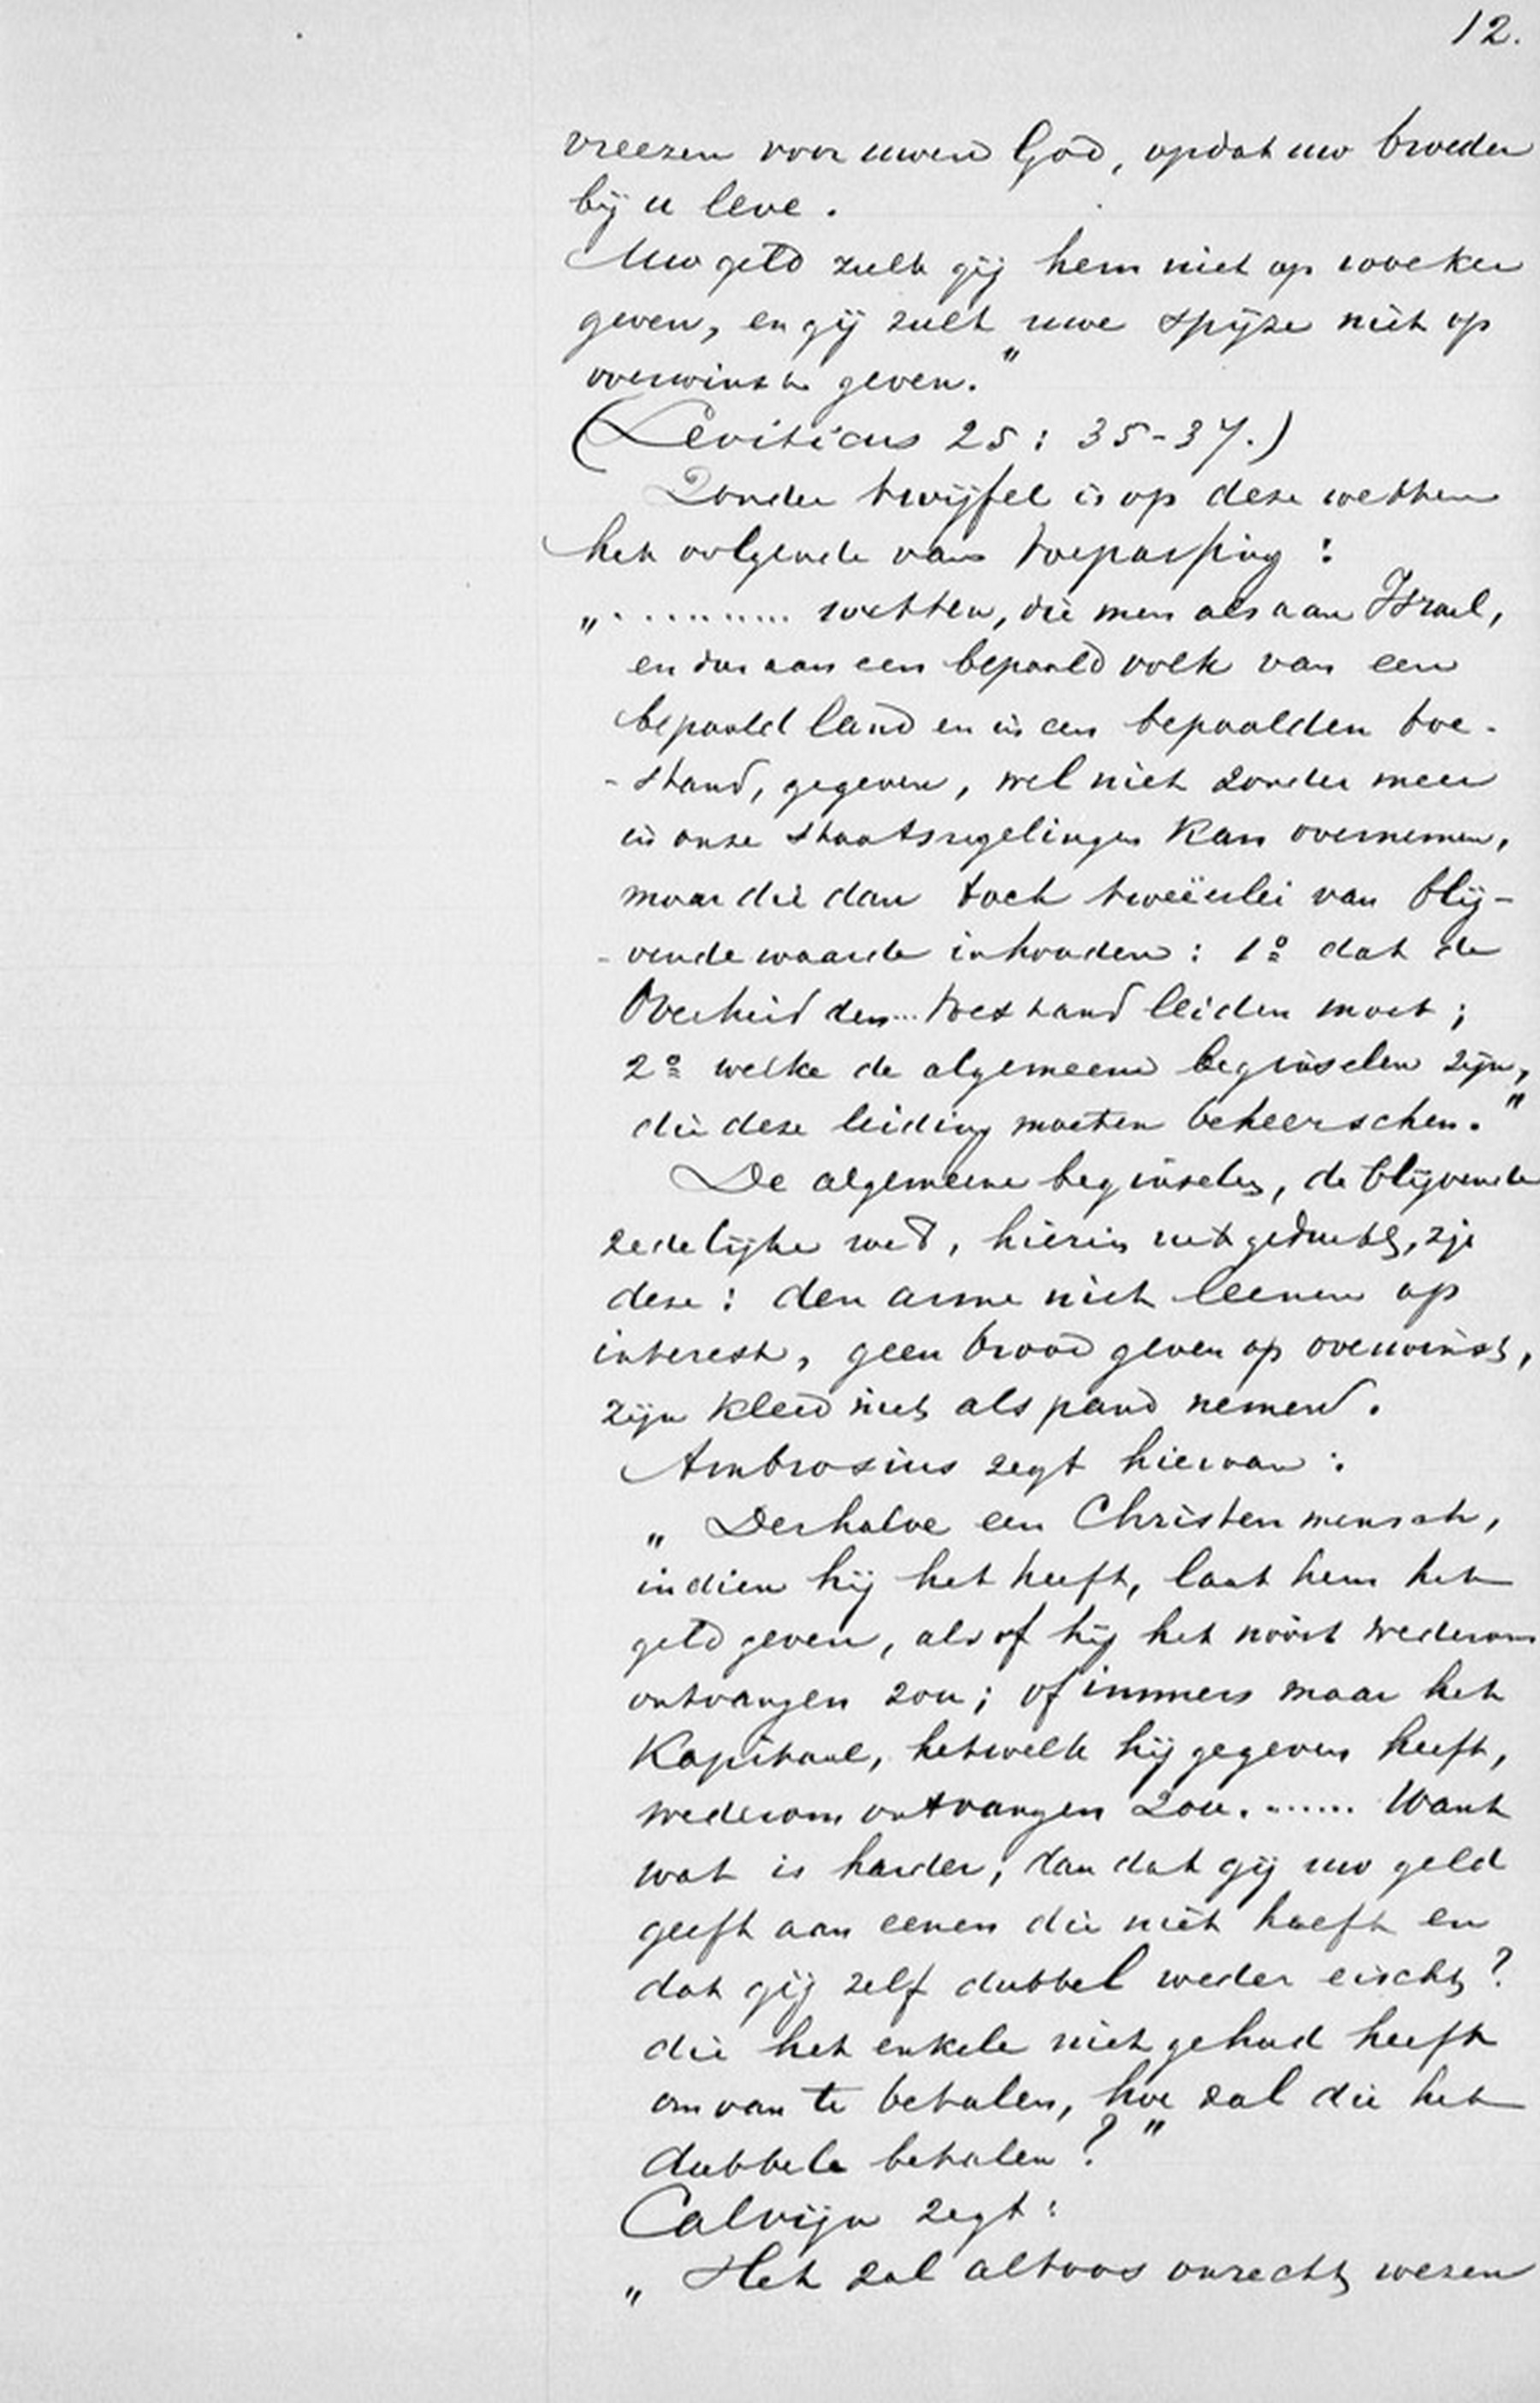 12.
vreezen voor uwen God, opdat uw broeder
bij u leve.
Uw geld zult gij hem niet op woeker
geven, en gij zult uwe spijze niet op
overwinst geven."
(Leviticus 25: 35-37.)
Zonder twijfel is op deze wetten
het volgende van toepassing:
„........... wetten, die men als aan Israel,
en dus aan een bepaald volk van een
bepaald land en in een bepaalden toe-
-stand, gegeven, wel niet zonder meer
in onze staatsregelingen kan overnemen,
maar die dan toch tweeërlei van blij-
-vende waarde inhouden: 1º dat de
Overheid den... toestand leiden moet;
2º welke de algemeene beginselen zijn,
die deze leiding moeten beheerschen."
De algemeene beginselen, de blijvende
zedelijke wet, hierin uitgedrukt, zijn
deze: den arme niet leenen op
interest, geen brood geven op overwinst,
zijn kleed niet als pand nemend.
Ambrosius zegt hiervan:
„Derhalve een Christen mensch,
indien hij het heeft, laat hem het
geld geven, alsof hij het nóóit wederom
ontvangen zou; of immers maar het
Kapitaal, hetwelk hij gegeven heeft,
wederom ontvangen zou........ Want
wat is harder, dan dat gij uw geld
geeft aan eenen die niet heeft en
dat gij zelf dubbel weder eischt?
die het enkele niet gehad heeft
om van te betalen, hoe zal die het
dubbele betalen?"
Calvijn zegt:
„Het zal altoos onrecht wezen